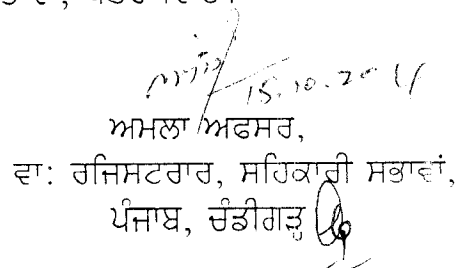 15.10.2011
ਅਮਲਾ ਅਫਸਰ,
ਵਾ: ਰਜਿਸਟਰਾਰ, ਸਹਿਕਾਰੀ ਸਭਾਵਾਂ,
ਪੰਜਾਬ, ਚੰਡੀਗੜ੍ਹ